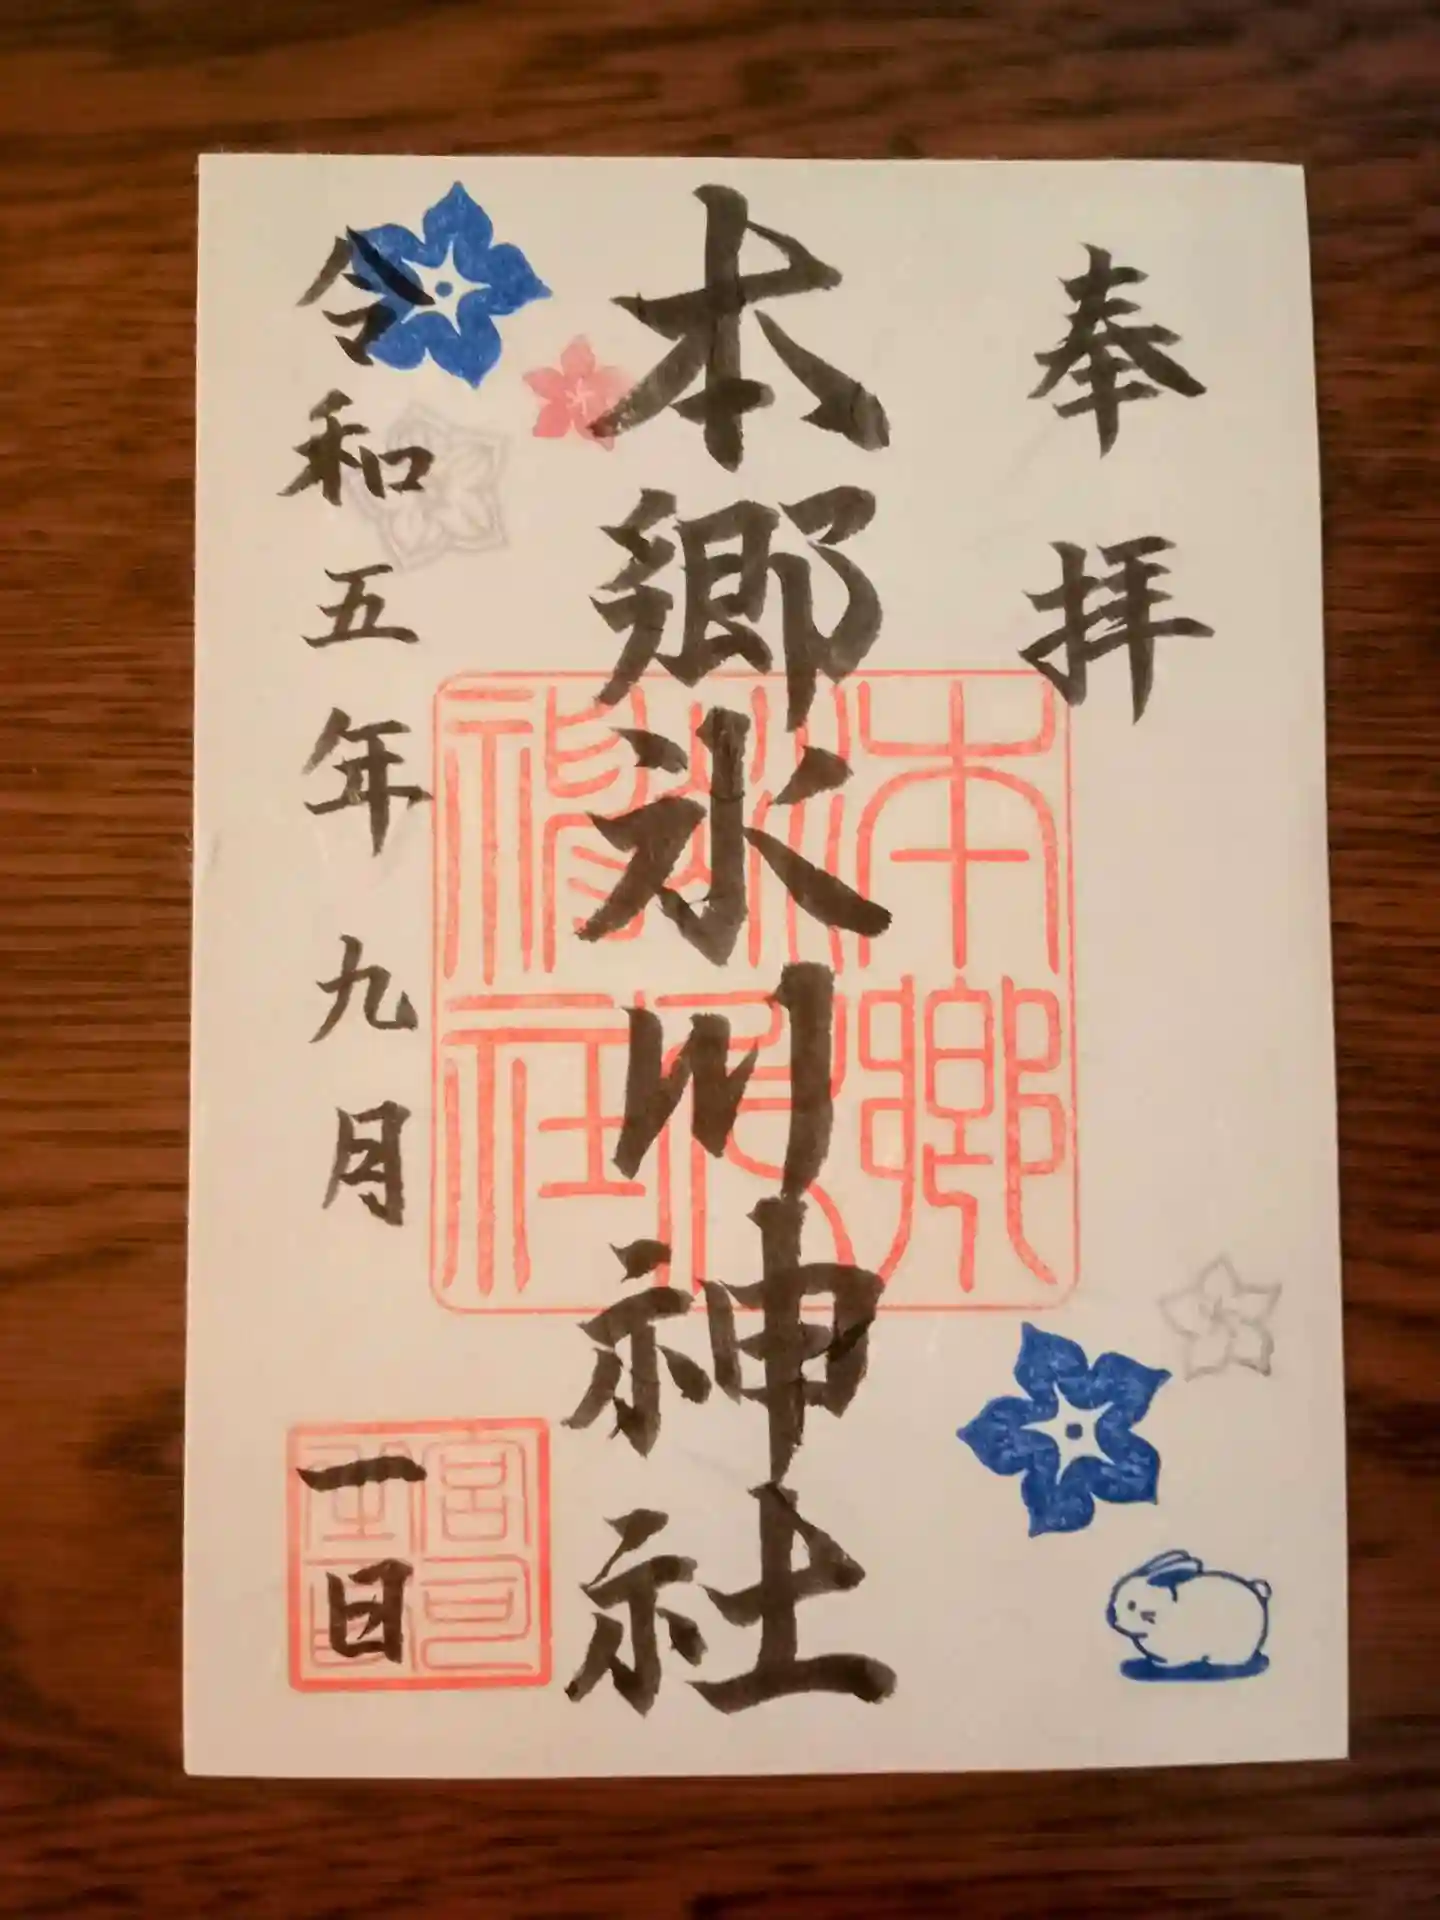 奉拝
本郷氷川神社
令和五年九月一日
本郷
氷川
神社